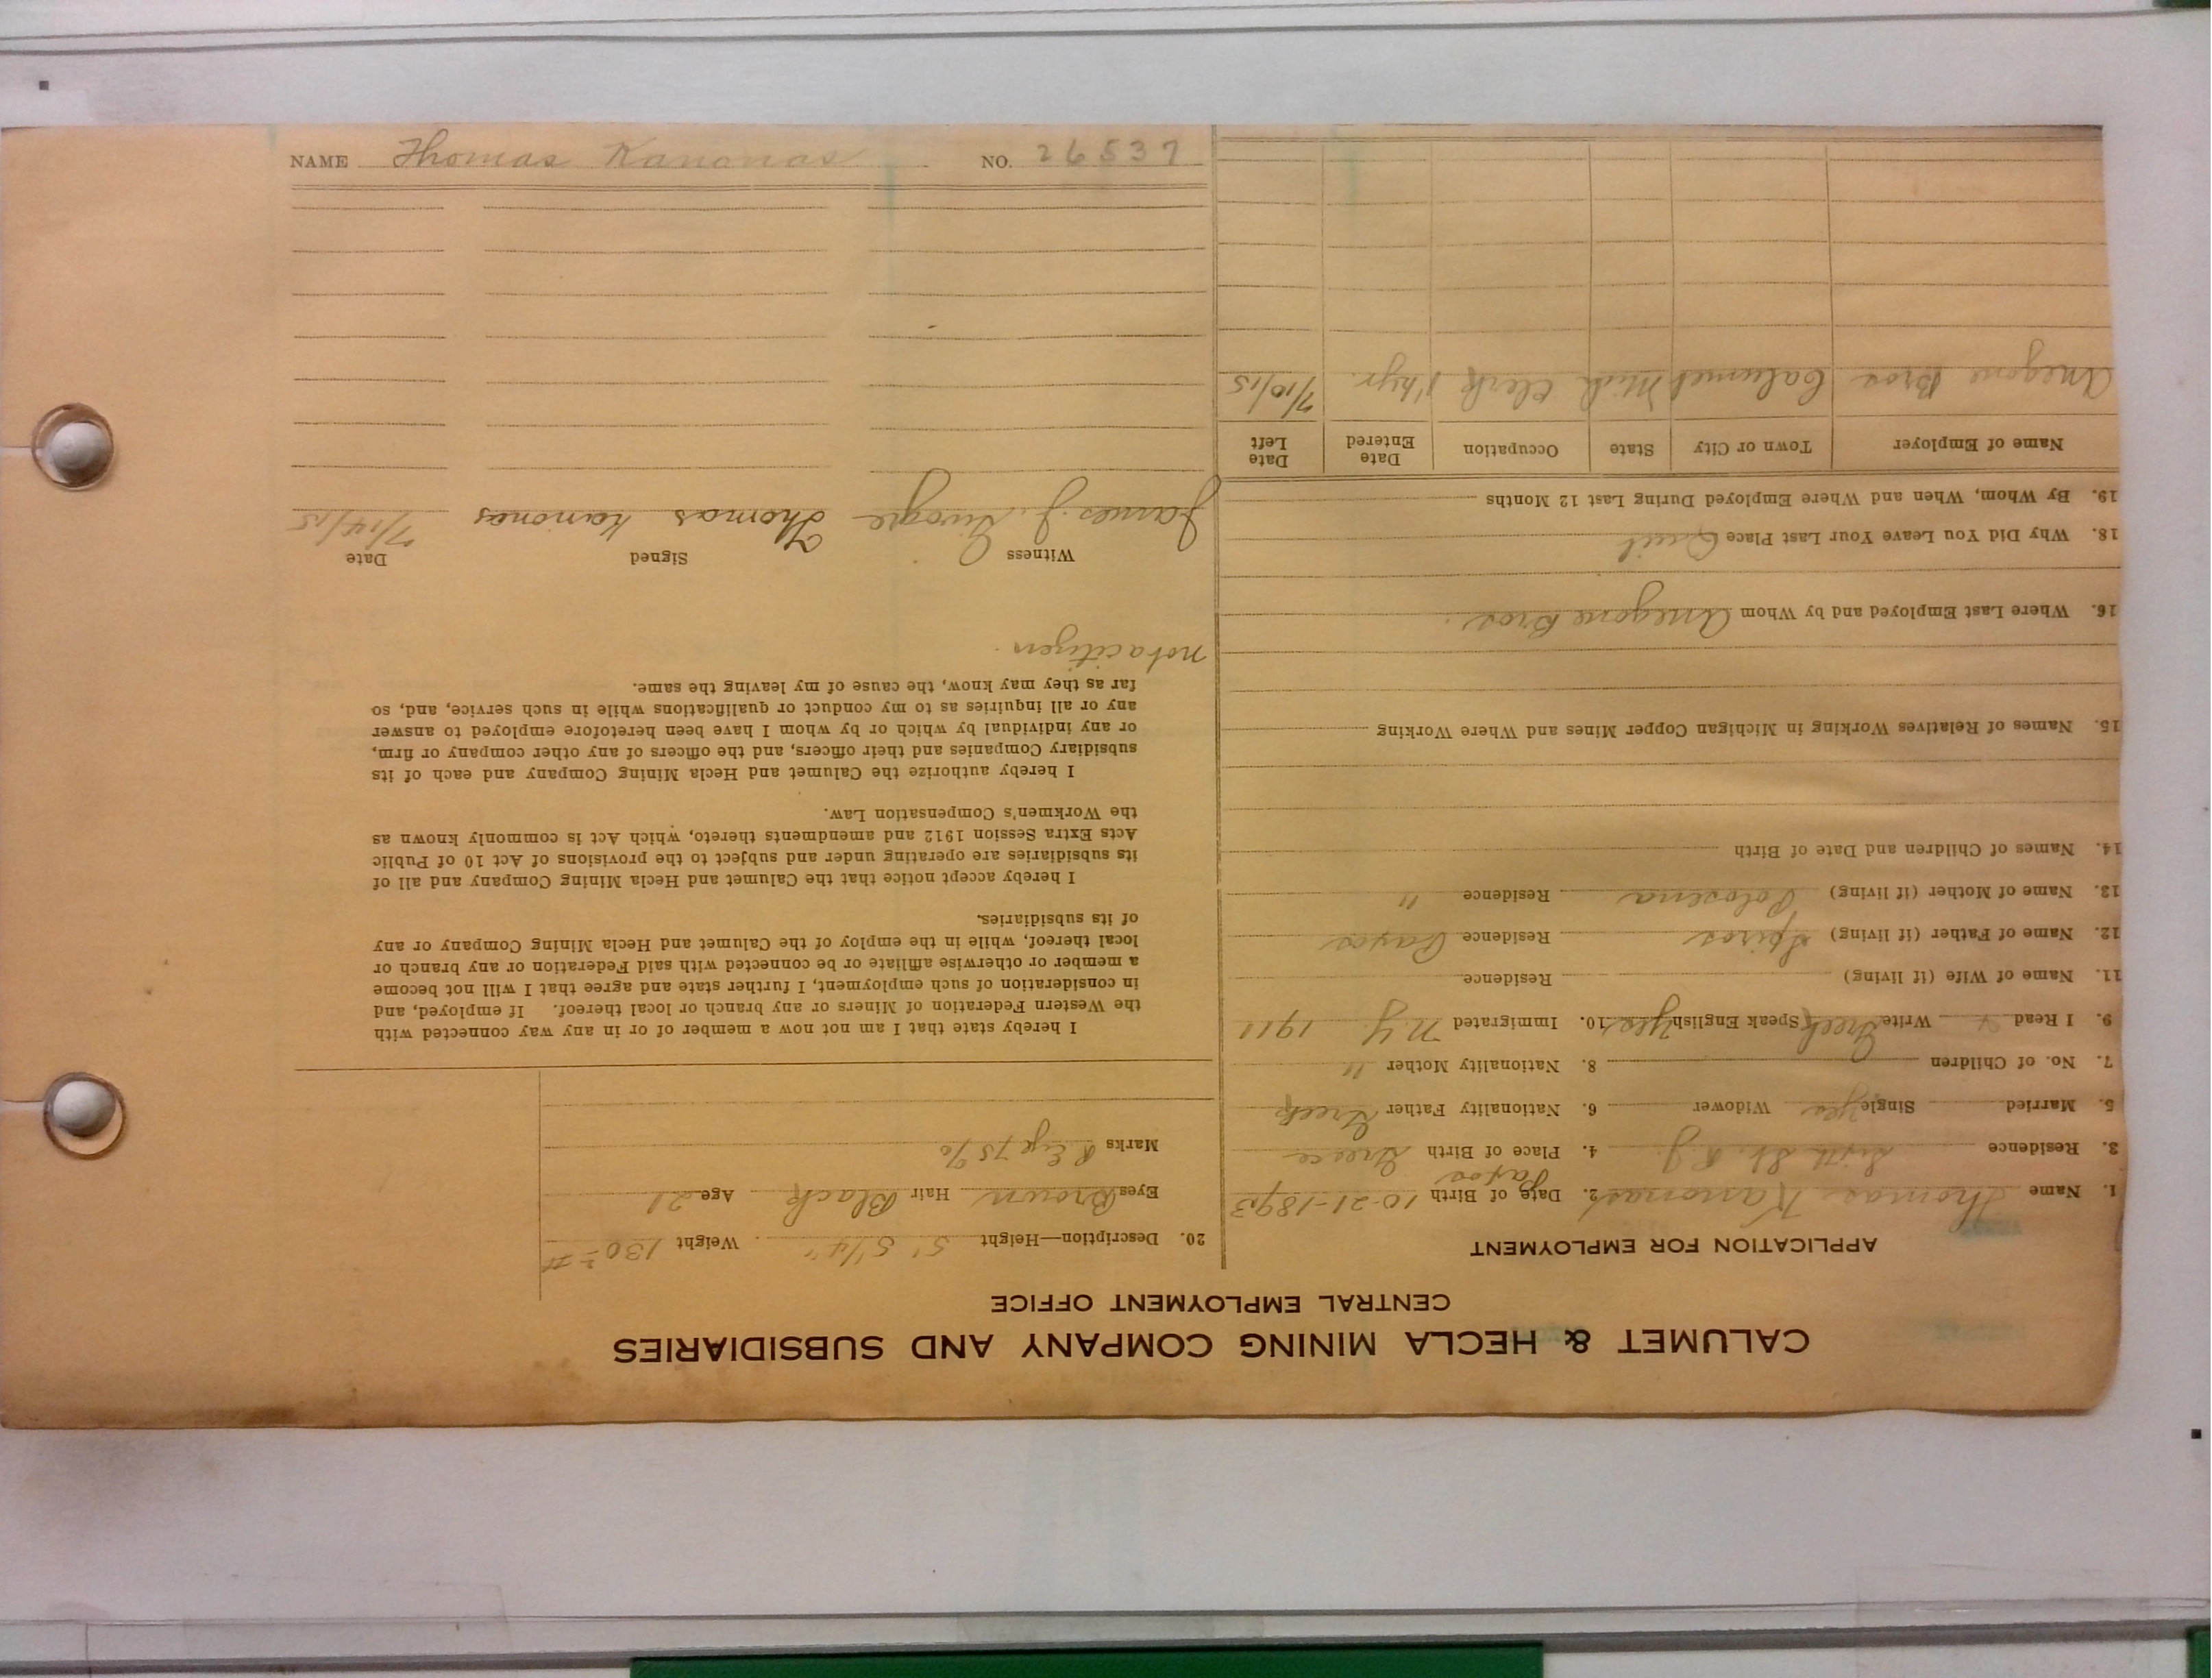 CALUMET & HECLA MINING COMPANY AND SUBSIDIARIES
CENTRAL EMPLOYMENT OFFICE
APPLICATION FOR EMPLOYMENT
1. Name Thomas Kanonas 2. Date of Birth 10-21-1893
3. Residence Sixth St. R.J. 4. Place of Birth Paxos Greece
5. Married Single yes Widower 6. Nationality Father Greek
7. No. of Children 8. Nationality Mother "
9. I Read Write Greek Speak English yes 10. Immigrated N.Y. 1911
11. Name of Wife (if living) Residence
12. Name of Father (if living) Spiros Residence Paxos
13. Name of Mother (if living) Polosena Residence "
14. Names of Children and Date of Birth
15. Names of Relatives Working in Michigan Copper Mines and Where Working
16. Where Last Employed and by Whom Anegone Bros.
18. Why Did You Leave Your Last Place Quit
19. By Whom, When and Where Employed During Last 12 Months
Name of Employer Town or City State Occupation Date Entered Date Left
Anegone Bros Calumet Mich Clerk 1½yr. 7/10/15
20. Description—Height 5' 5¼" Weight 130#
Eyes Brown Hair Black Age 21
Marks R Eye 75%
I hereby state that I am not now a member of or in any way connected with
the Western Federation of Miners or any branch or local thereof. If employed, and
in consideration of such employment, I further state and agree that I will not become
a member or otherwise affiliate or be connected with said Federation or any branch or
local thereof, while in the employ of the Calumet and Hecla Mining Company or any
of its subsidiaries.
I hereby accept notice that the Calumet and Hecla Mining Company and all of
its subsidiaries are operating under and subject to the provisions of Act 10 of Public
Acts Extra Session 1912 and amendments thereto, which Act is commonly known as
the Workmen's Compensation Law.
I hereby authorize the Calumet and Hecla Mining Company and each of its
subsidiary Companies and their officers, and the officers of any other company or firm,
or any individual by which or by whom I have been heretofore employed to answer
any or all inquiries as to my conduct or qualifications while in such service, and, so
far as they may know, the cause of my leaving the same.
not a citizen.
Witness Signed Date
James J. Thomas Kanonas 7/14/15
NAME Thomas Kanonas NO. 26537